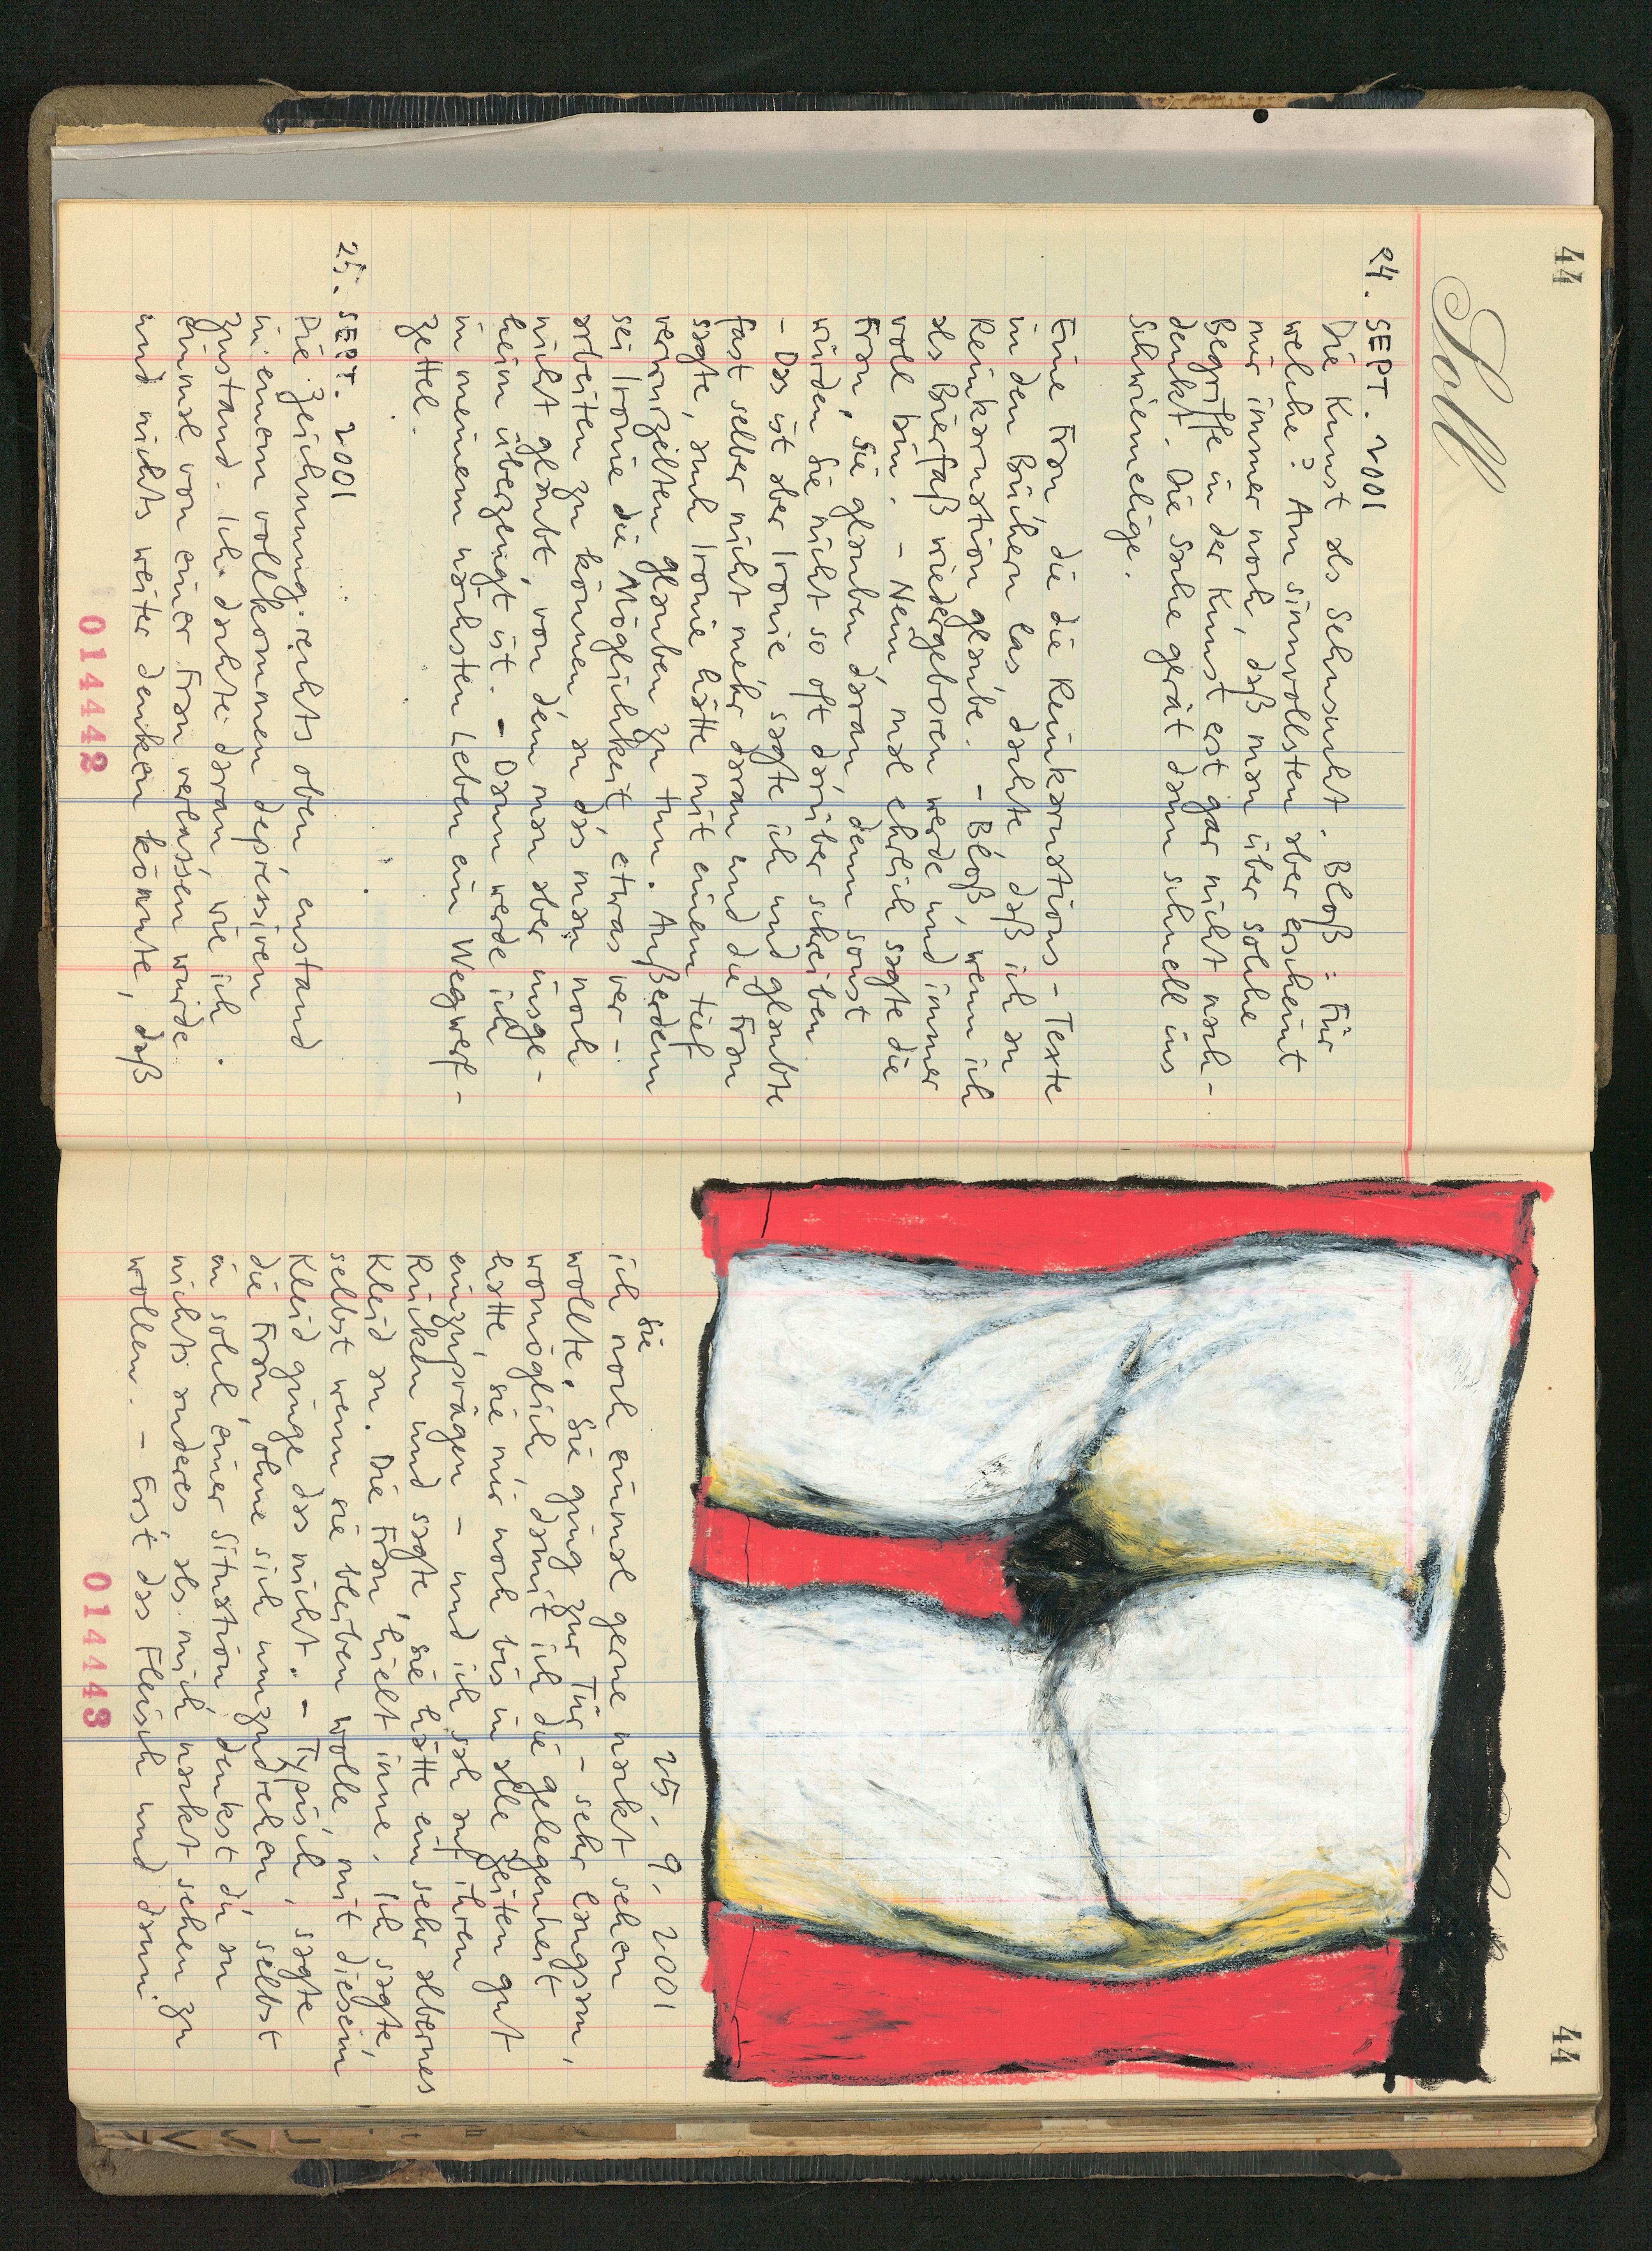 44
Soll
24. SEPT. 2001
Die Kunst als Sehnsucht. Bloß: Für
welche? Am sinnvollsten aber erscheint
mir immer noch, daß man über solche
Begriffe in der Kunst erst gar nicht nach-
denkt. Die Sache gerät dann schnell ins
Schwiemelige.
Eine Frau, die die Reinkarnations-Texte
in den Büchern las, dachte, daß ich an
Reinkarnation glaube. - Bloß, wenn ich
als Bierfaß wiedergeboren werde und immer
voll bin. - Nein, mal ehrlich sagte die
Frau, Sie glauben daran, denn sonst
würden Sie nicht so oft darüber schreiben
- Das ist aber Ironie sagte ich und glaubte
fast selber nicht mehr daran und die Frau
sagte, auch Ironie hätte mit einem tief
verwurzelten Glauben zu tun. Außerdem
sei Ironie die Möglichkeit, etwas ver-
arbeiten zu können, an das man noch
nicht glaubt, von dem man aber insge-
heim überzeugt ist. - Dann werde ich
in meinem nächsten Leben ein Wegwerf-
zettel.
25. SEPT. 2001
Die Zeichnung rechts oben, enstand
in einem vollkommen depressiven
Zustand. Ich dachte daran, wie ich
einmal von einer Frau verlassen wurde
und nichts weiter denken konnte, daß
014442
44
25. 9. 2001
sie
ich noch einmal gerne nackt sehen
wollte. Sie ging zur Tür - sehr langsam,
womöglich, damit ich die Gelegenheit
hatte, sie mir noch bis in alle Zeiten gut
einzuprägen - und ich sah auf ihren
Rücken und sagte, sie hätte ein sehr albernes
Kleid an. Die Frau hielt inne. Ich sagte,
selbst wenn sie bleiben wolle, mit diesem
Kleid ginge das nicht. - Typisch, sagte
die Frau, ohne sich umzudrehen, selbst
in solch einer Situation denkst du an
nichts anderes als mich nackt sehen zu
wollen. - Erst das Fleisch und dann.
014443